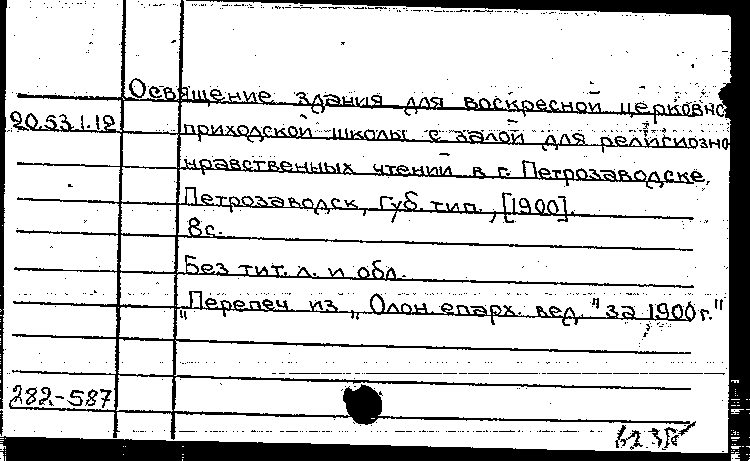 Освящение здания для воскресной церковно
20.53.1.12
приходской школы с залой для религиозно
нравственных чтений в г. Петрозаводске.
Петрозаводск, Губ. тип., [1900].
8с.
Без тит. л. и обл.
„Перепеч. из „Олон. епарх. вед." за 1900г."
282-587